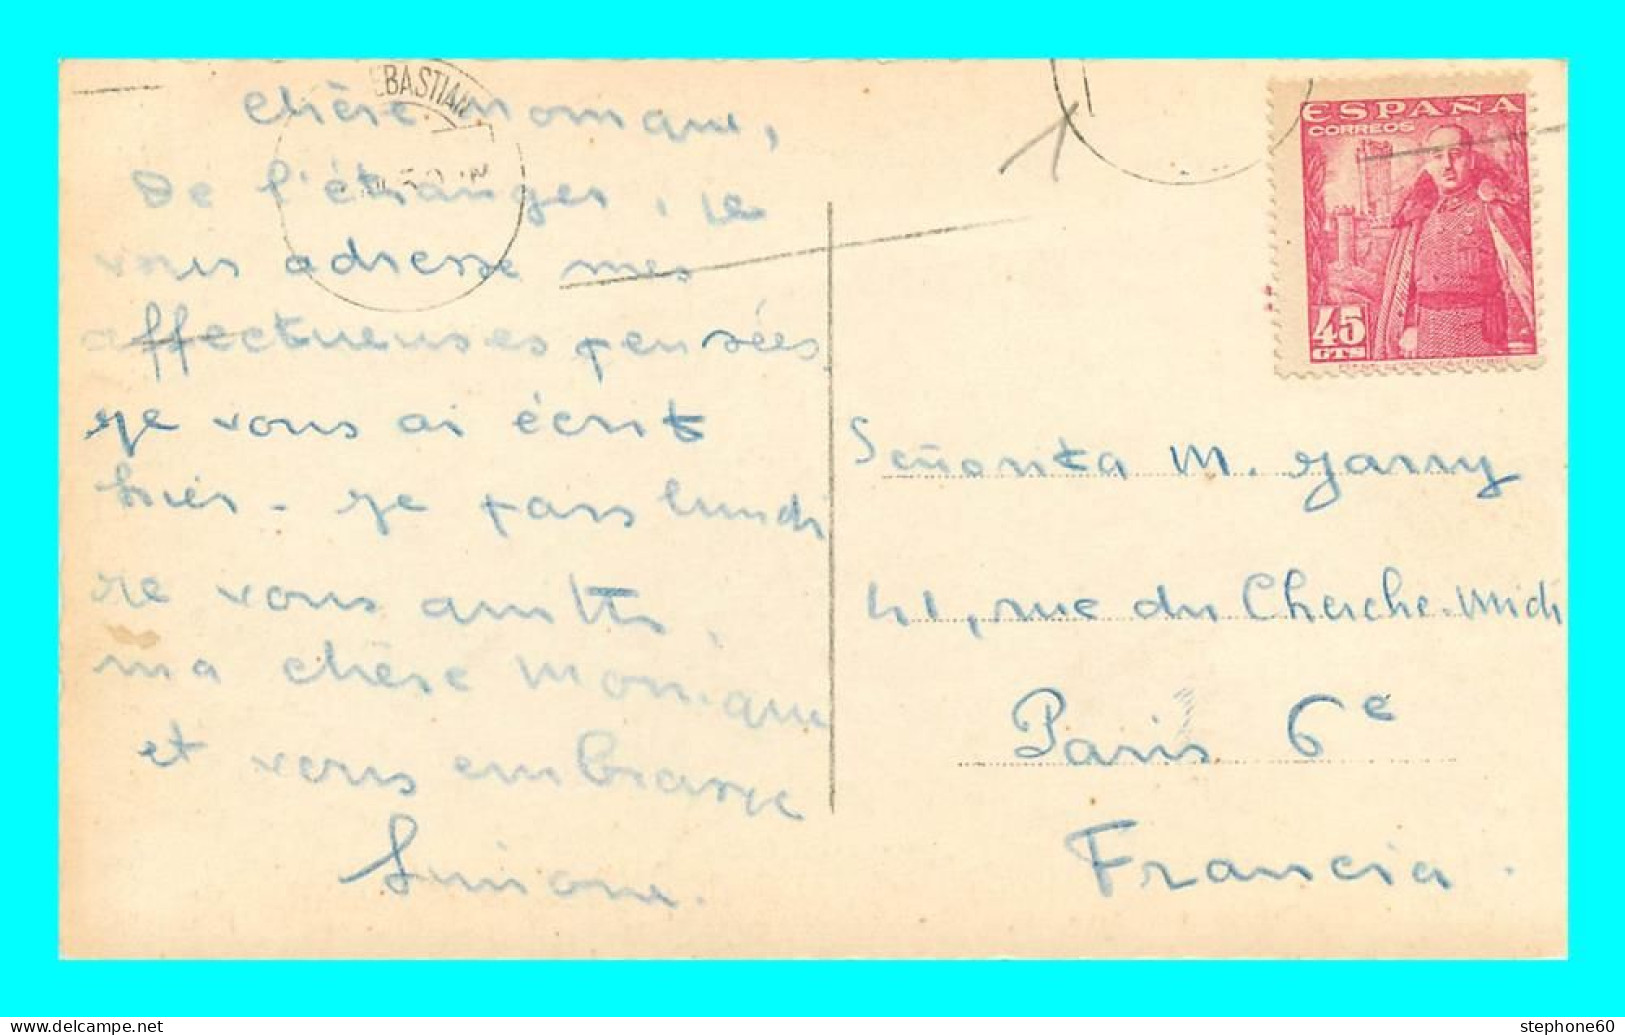 EBASTIAN
Chère Monique,
De l'étranger, je
vous adresse mes
affectueuses pensées.
Je vous ai écrit
hier - je pars lundi
Je vous quitte,
ma chère Monique
et vous embrasse
Simone.
ESPAÑA
CORREOS
45
CTS
Señorita M. Garry
41, rue du Cherche-Midi
Paris 6e
Francia.
www.delcampe.net
stephone60